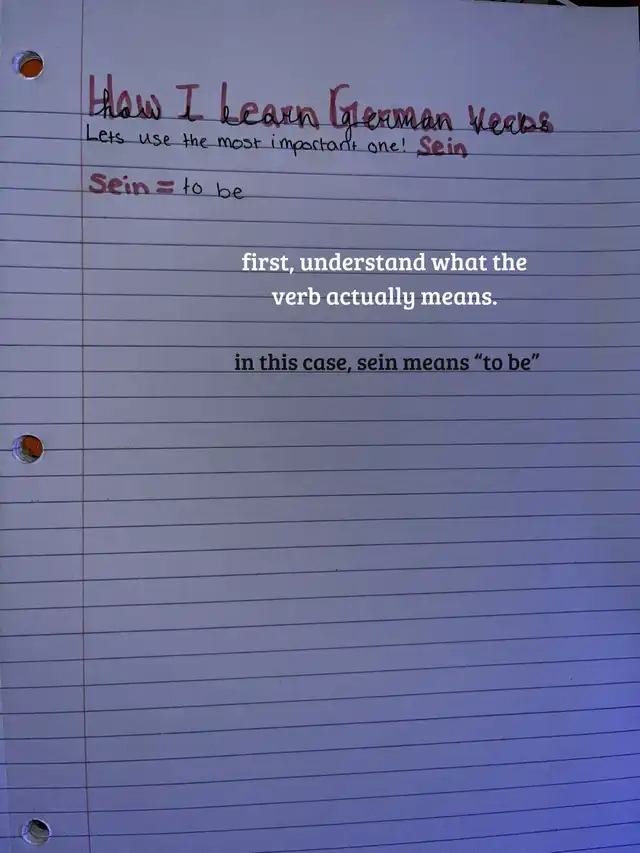 How I Learn German Verbs
Lets use the most important one! Sein
Sein = to be
first, understand what the
verb actually means.
in this case, sein means “to be”